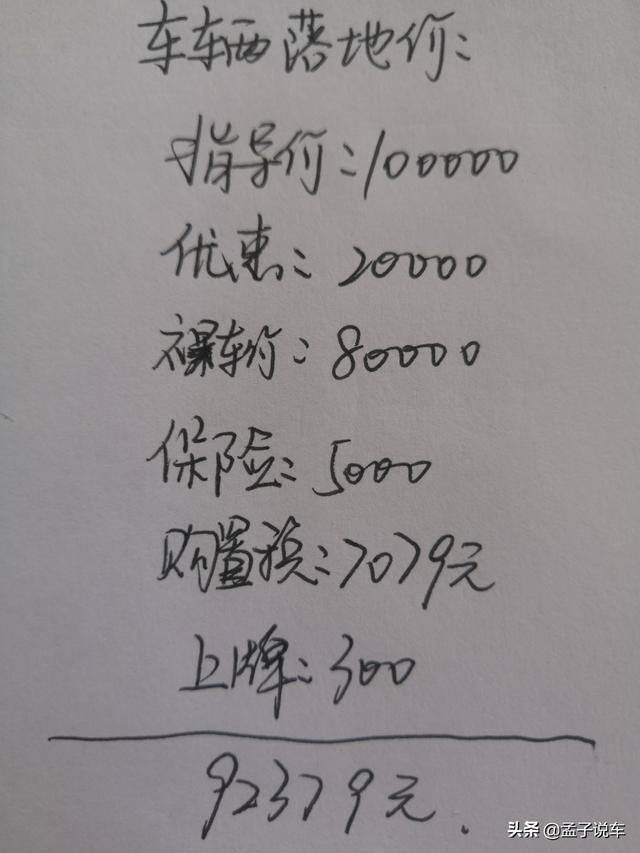 车车辆落地价:
指导价:100000
优惠:20000
裸车价:80000
保险:5000
购置税:7079元
上牌:300
92379元.
头条 @孟子说车